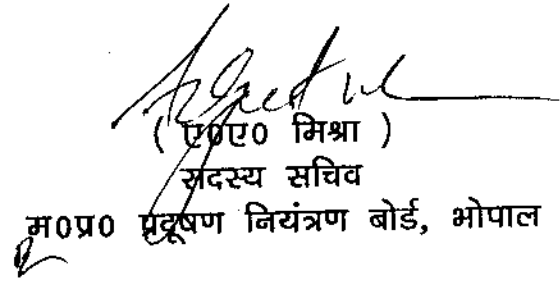 ( ए0ए0 मिश्रा )
सदस्य सचिव
म0प्र0 प्रदूषण नियंत्रण बोर्ड, भोपाल